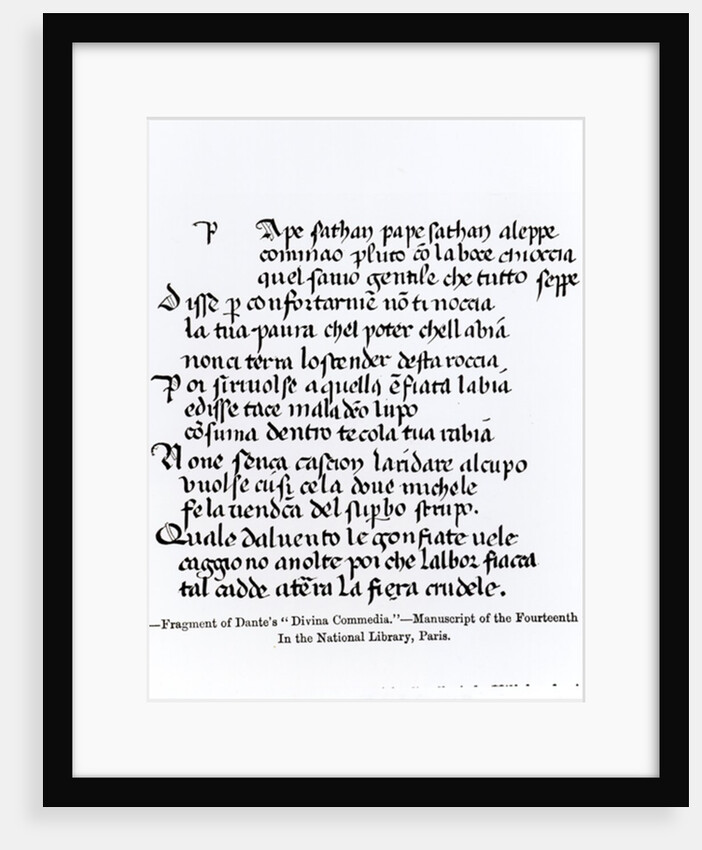 P Ape sathan pape sathan aleppe
cominao pluto cō la boce chioccia
quel savio gentile che tutto seppe
Disse p confortarmē nō ti noccia
la tua paura chel poter chell abiá
non ci terra lo scender desta roccia
Poi si rivolse a quella ēfiata labiá
edisse tace maladēo lupo
cōsuma dentro te cola tua rabiá
None senca cascion laridare al cupo
vuolse cusi cela dove michele
fe la vendcā del supbo strupo.
Quale dal vento le gonfiate vele
caggiono anolte poi che lalbor fiacca
tal cadde atēra la fiera crudele.
—Fragment of Dante's "Divina Commedia."—Manuscript of the Fourteenth
In the National Library, Paris.